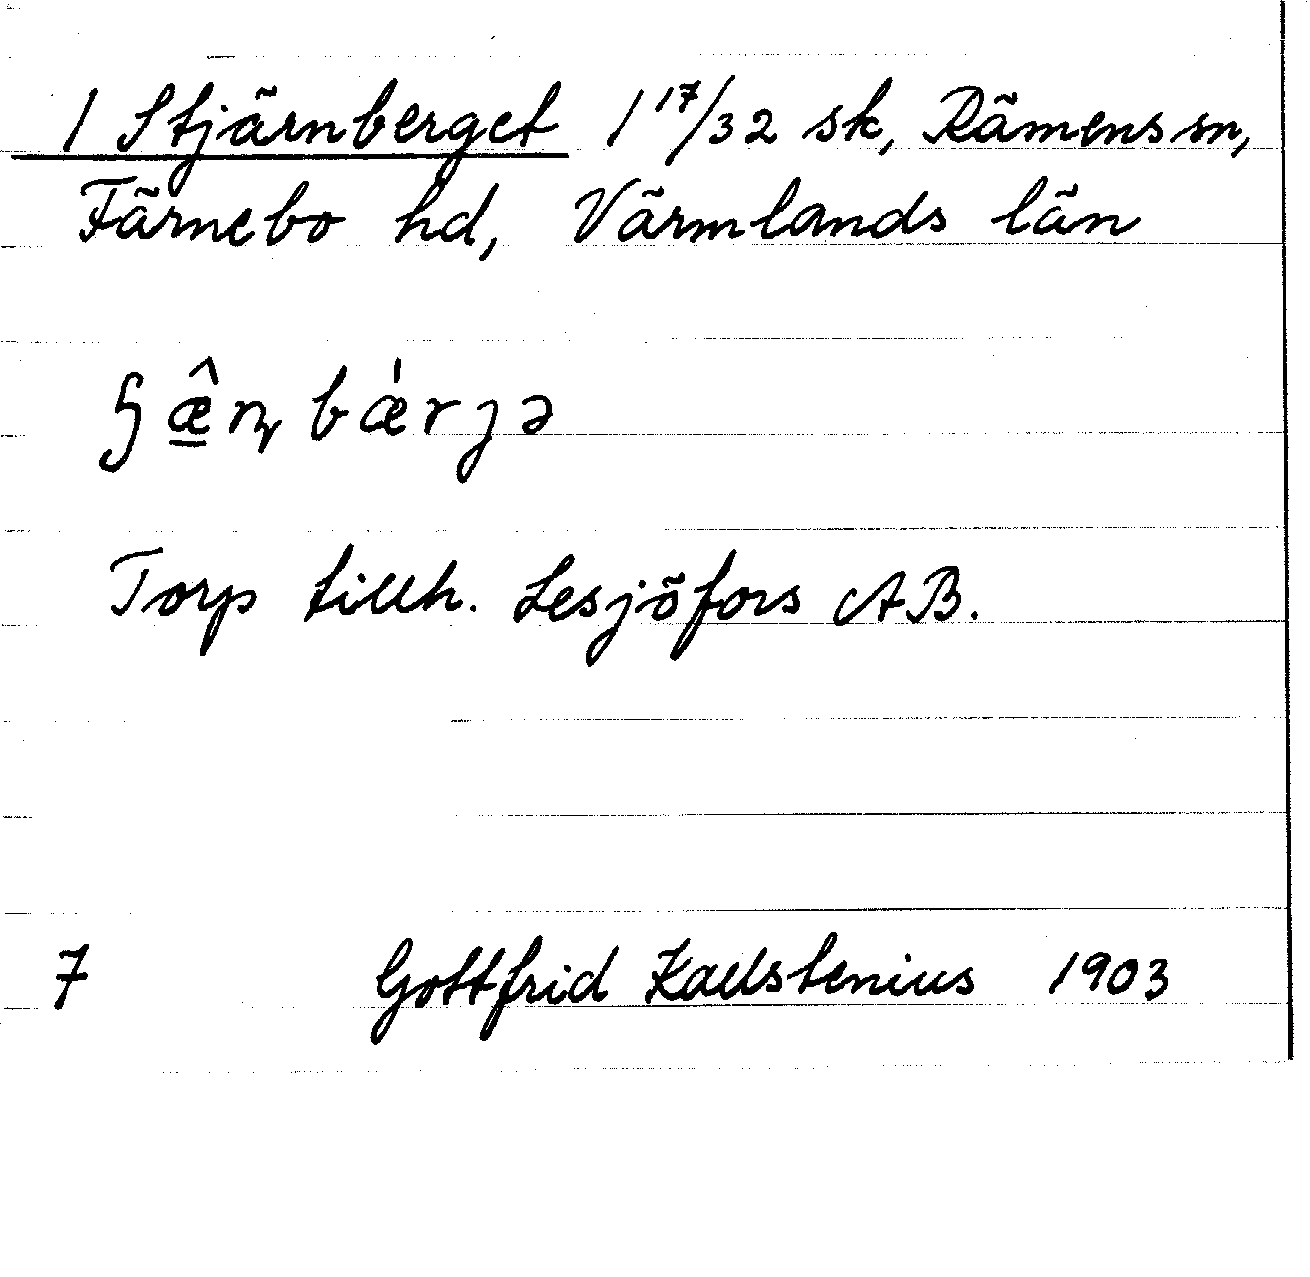 1 Stjärnberget 1 17/32 sk, Rämens sn,
Färnebo hd, Värmlands län
ʂæ̠̂ɳbǽrɟə
Torp tillh. Lesjöfors AB.
7 Gottfrid Kallstenius 1903